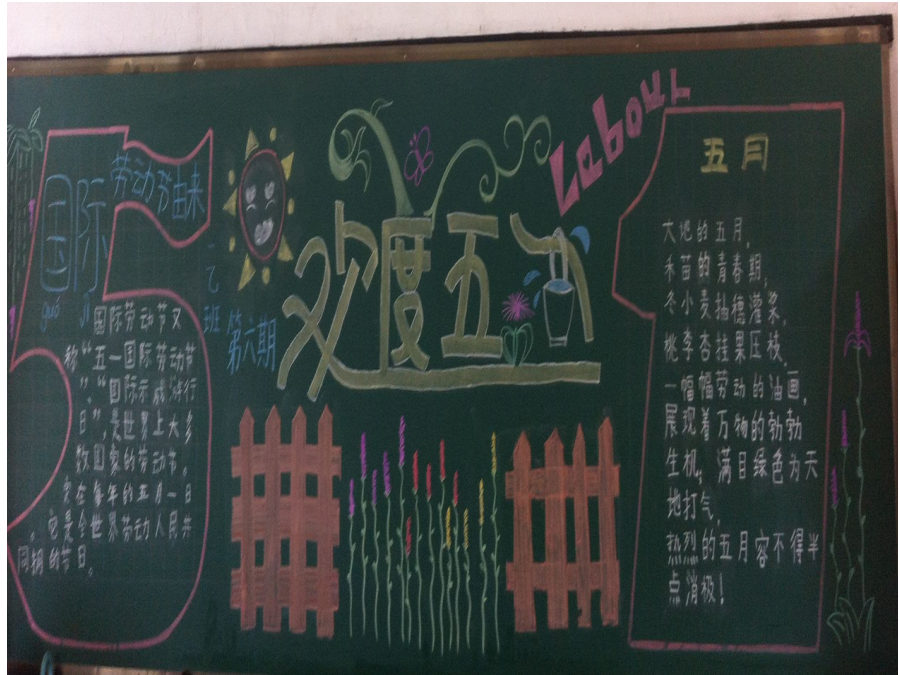 劳动节由来
国际
guó jì
国际劳动节又
称“五一国际劳动节
”、“国际示威游行
日”,是世界上大多
数国家的劳动节。
定在每年的五月一日
。它是全世界劳动人民共
同拥的节日。
一乙班
第六期
欢度五一
Labour
五月
大地的五月,
禾苗的青春期,
冬小麦抽穗灌浆,
桃李杏挂果压枝,
一幅幅劳动的油画,
展现着万物的勃勃
生机,满目绿色为天
地打气,
热烈的五月容不得半
点消极!